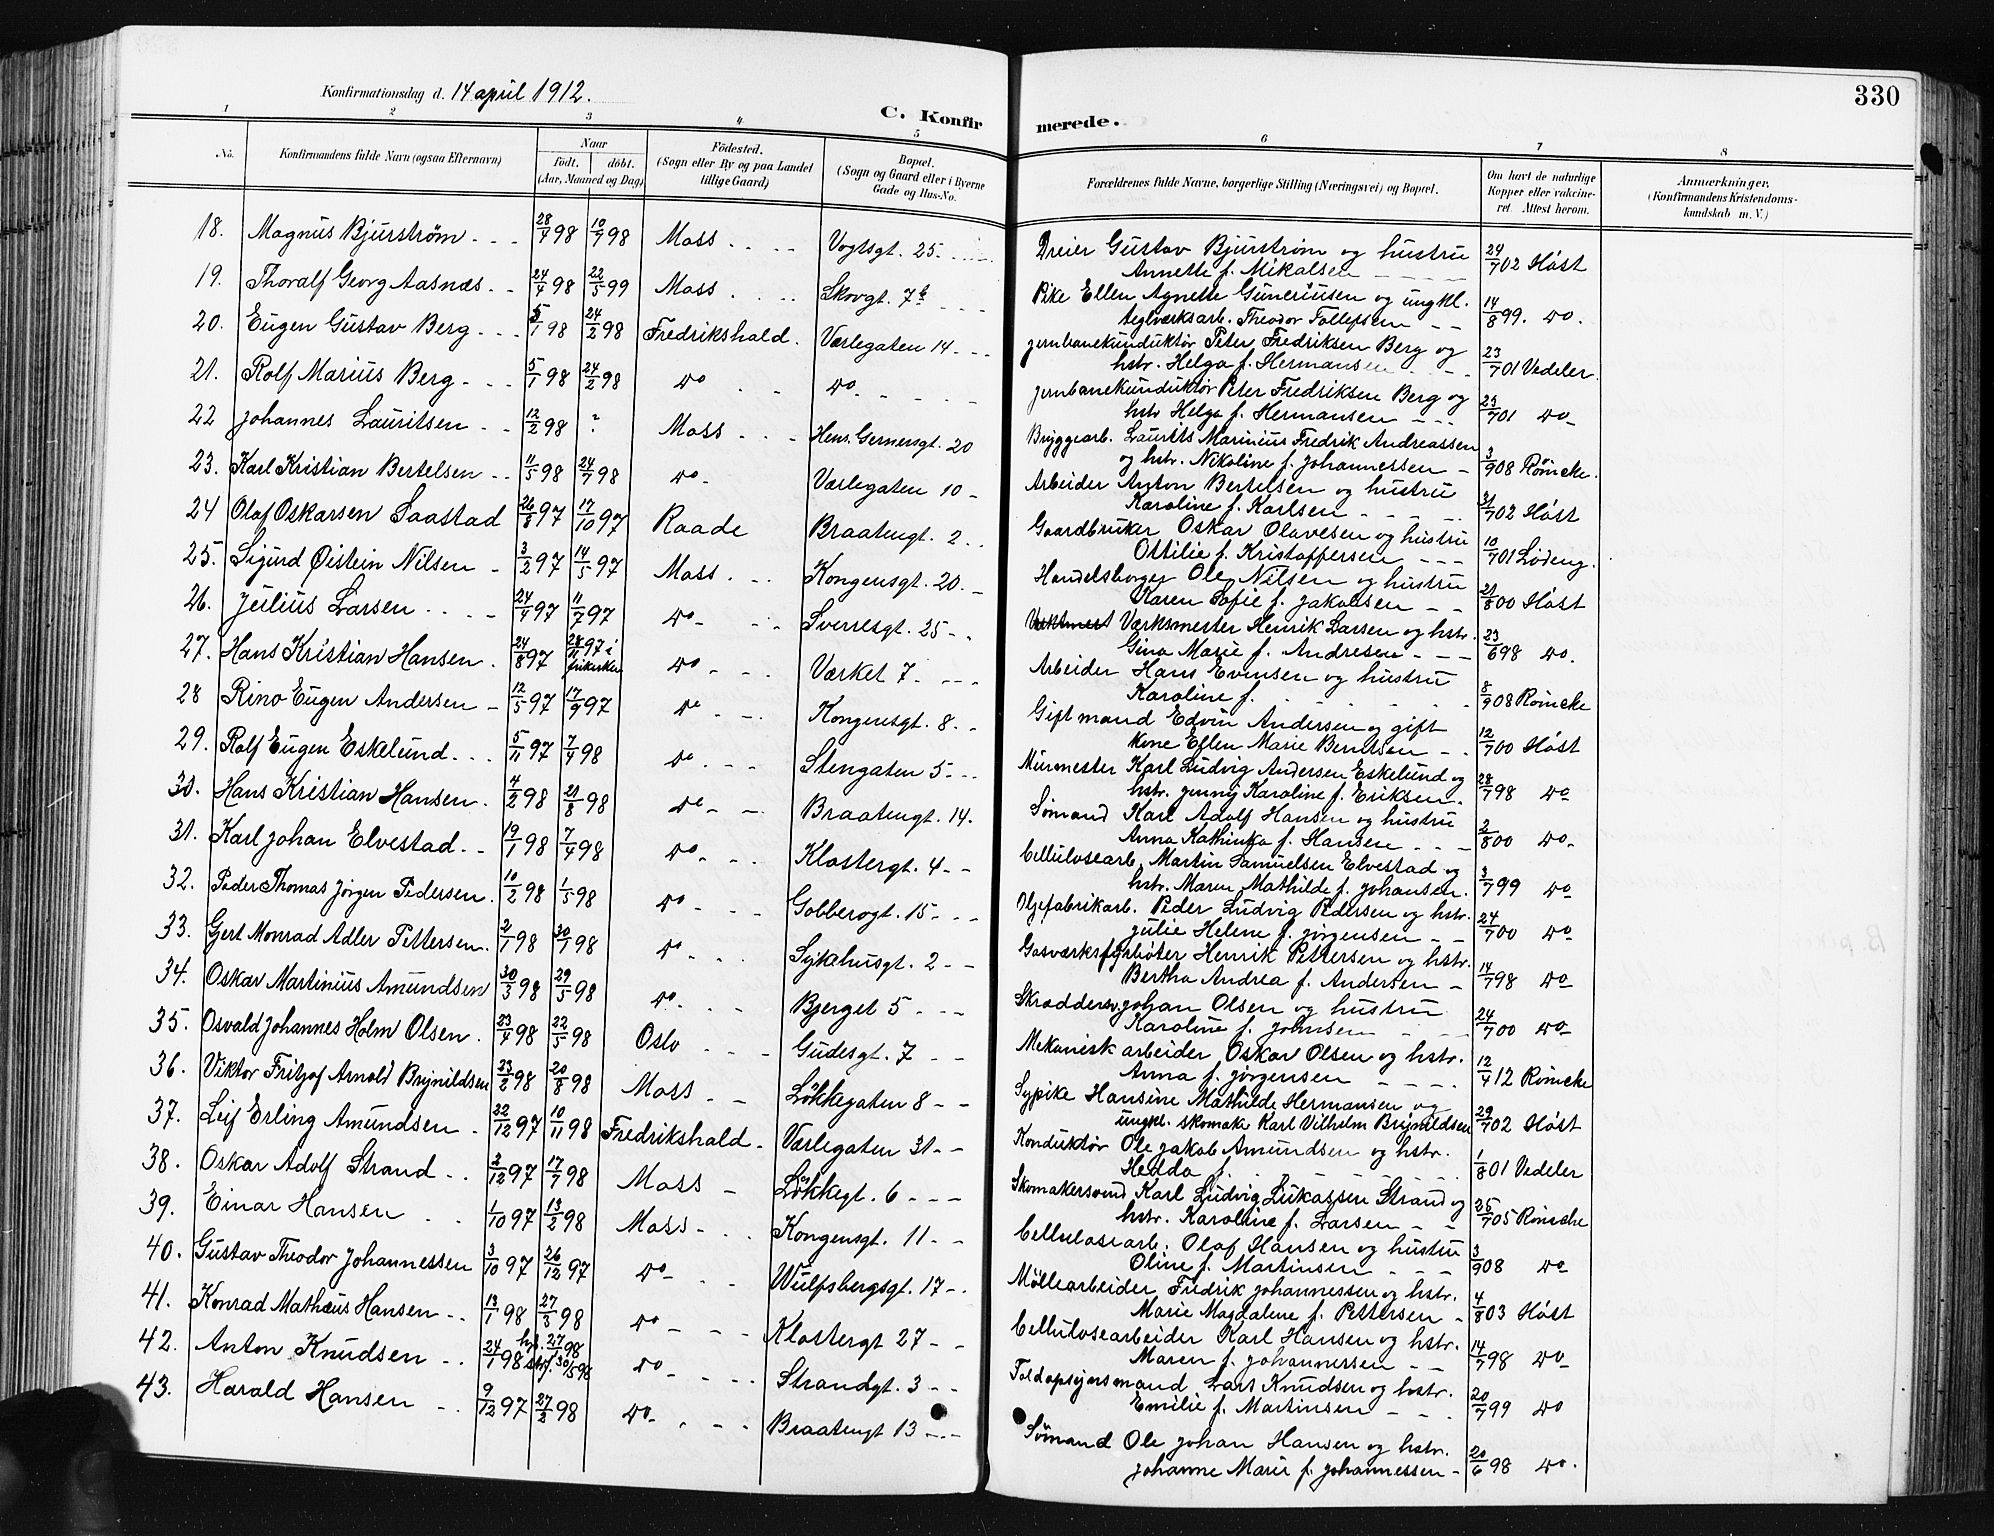 Konfirmationsdag d. 14 april 1912.
330
C. Konfirmerede.
1 2 3 4 5 6 7 8
No.
Konfirmandens fulde Navn (ogsaa Efternavn)
Naar
født. døbt.
(Aar, Maaned og Dag)
Födested.
(Sogn eller By og paa Landet
tillige Gaard)
Bopæl.
(Sogn og Gaard eller i Byerne
Gade og Hus-No.
Forældrenes fulde Navne, borgerlige Stilling (Næringsvei) og Bopæl.
Om havt de naturlige
Kopper eller vakcine-
ret. Attest herom.
Anmærkninger.
(Konfirmandens Kristendoms-
kundskab m. V.)
18. Magnus Bjurstrøm 28/7 98 10/9 98 Moss Vogtsgt. 25 Dreier Gustav Bjurstrøm og hustru
Annette f. Mikalsen 24/7 02 Høst
19. Thoralf Georg Aasnæs 24/4 98 22/5 99 Moss Skovgt. 7b Pike Ellen Agnette Guneriusen og ungkl.
teglværksarb. Theodor Tollefsen 14/8 99. do.
20. Eugen Gustav Berg 5/1 98 24/2 98 Fredrikshald. Værlegaten 14 Jernbanekunduktør Peter Fredriksen Berg og
hstr. Helga f. Hermansen 23/7 01 Vedeler.
21. Rolf Marius Berg 5/1 98 24/2 98 do do. Jernbanekunduktør Peter Fredriksen Berg og
hstr Helga f. Hermansen 23/7 01 do
22 Johannes Lauritsen 12/2 98 ? Moss Hens. Gernersgt. 20 Bryggearb. Laurits Marinius Fredrik Andreassen
og hstr. Nikoline f. Johannessen 3/9 08 Røincke.
23. Karl Kristian Bertelsen 11/5 98 24/7 98 do Værlegaten 10 Arbeider Anton Bertelsen og hustru
Karoline f. Karlsen 31/7 02 Høst
24 Olaf Oskarsen Saastad 26/8 97 17/10 97 Raade Braatengt. 2 Gaardbruker Oskar Olavesen og hustru
Ottilie f. Kristoffersen 10/7 01 Lødeng.
25. Sigurd Øistein Nilsen 3/2 97 14/5 97 Moss Kongensgt. 20 Handelsborger Ole Nilsen og hustru
Karen Sofie f. Jakobsen 21/8 00 Høst
26. Julius Larsen 24/4 97 11/7 97 do Sverresgt. 25 Værksmester Henrik Larsen og hstr.
Gina Marie f. Andresen 23/6 98 do.
27. Hans Kristian Hansen 24/8 97 28/11 97 i
frikirken do Værket 7 Arbeider Hans Evensen og hustru
Karoline f. 8/9 08 Røincke
28 Rino Eugen Andersen 12/5 97 17/9 97 do Kongensgt. 8 Gift mand Edvin Andersen og gift
kone Ellen Marie Berntsen 12/7 00 Høst
29. Rolf Eugen Eskelund 5/11 97 7/4 98 do Stengaten 5 Murmester Karl Ludvig Andersen Eskelund og
hstr. Jenny Karoline f. Eriksen. 28/7 98 do
30. Hans Kristian Hansen 4/2 98 21/8 98 do Braatengt. 14. Sømand Karl Adolf Hansen og hustru
Anna Kathinka f. Hansen 2/8 00 do
31. Karl Johan Elvestad 19/1 98 7/4 98 do Klostergt. 4 Cellulosearb. Martin Samuelsen Elvestad og
hstr. Maren Mathilde f. Johansen. 3/7 99 do
32. Peder Thomas Jørgen Pedersen. 10/2 98 1/5 98 do Gobberogt. 15 Oljefabrikarb. Peder Ludvig Pedersen og hstr.
Julie Helene f. Jørgensen 24/7 00 do
33. Gert Monrad Adler Pettersen. 2/1 98 30/1 98 do Sykehusgt. 2 Gasværksfyrbøter Henrik Pettersen og hstr.
Bertha Andrea f. Andersen 14/7 98 do
34. Oskar Martinius Amundsen 30/3 98 29/5 98 do Bjerget 5 Skræddersv. Johan Olsen og hustru
Karoline f. Johnsen 24/7 00 do
35. Osvald Johannes Holm Olsen. 23/4 98 22/5 98 Oslo Gudesgt. 7 Mekanisk arbeider Oskar Olsen og hstr.
Anna f. Jørgensen 12/4 12 Røincke
36. Viktor Fritjof Arnold Brynildsen 23/2 98 20/8 98 Moss Løkkegaten 8 Sypike Hansine Mathilde Hermansen og
ungkl. skomake Karl Vilhelm Brynildsen 29/7 02 Høst
37. Leif Erling Amundsen 22/12 97 10/11 98 Fredrikshald Værlegaten 31 Konduktør Ole Jakob Amundsen og hstr.
Hedda f. 1/8 01 Vedeler
38. Oskar Adolf Strand 2/12 97 17/7 98 Moss Løkkegt. 6 Skomakersvend Karl Ludvig Lukassen Strand og
hstr. Karoline f. Larsen 25/7 05 Røincke
39. Einar Hansen 1/10 97 13/2 98 Moss Kongensgt. 11 Cellulosearb. Olaf Hansen og hustru
Oline f. Martinsen 3/9 08 do
40. Gustav Theodor Johannessen 3/10 97 26/12 97 do Wulfsbergsgt. 17 Møllearbeider Fredrik Johannessen og hstr.
Marie Magdalene f. Pettersen 4/8 03 Høst
41. Konrad Mathæus Hansen 13/1 98 27/3 98 do Klostergt 27 Cellulosearbeider Karl Hansen og hstr.
Maren f. Johannessen 14/7 98 do
42. Anton Knudsen 24/1 98 hjd. 27/1 98
stf. 30/5 98 do Strandgt. 3 Toldopsynsmand Lars Knudsen og hstr.
Emilie f. Martinsen 20/7 99 do
43. Harald Hansen 9/12 97 27/2 98 do Braatengt 13 Sømand Ole Johan Hansen og hstr.
Johanne Marie f. Johannessen 20/6 98 do.